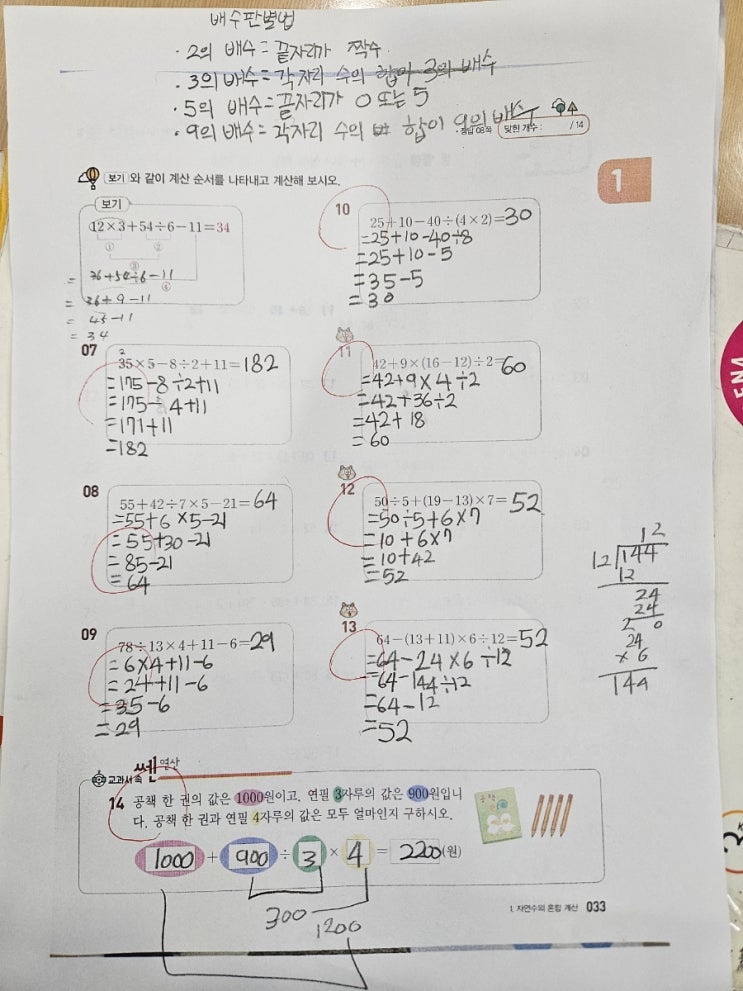 배수판별법
· 2의 배수 = 끝자리가 짝수
· 3의 배수 = 각 자리 수의 합이 3의 배수
· 5의 배수 = 끝자리가 0 또는 5
· 9의 배수 = 각자리 수의 합이 9의 배수
· 정답 08쪽 맞힌 개수 : /14
보기 와 같이 계산 순서를 나타내고 계산해 보시오.
1
보기
12×3+54÷6-11=34
① ②
③
④
= 36+54÷6-11
= 36+9-11
= 45-11
= 34
07
35×5-8÷2+11=182
=175-8÷2+11
=175-4+11
=171+11
=182
08
55+42÷7×5-21=64
=55+6×5-21
=55+30-21
=85-21
=64
09
78÷13×4+11-6=29
=6×4+11-6
=24+11-6
=35-6
=29
10
25+10-40÷(4×2)=30
=25+10-40÷8
=25+10-5
=35-5
=30
11
42+9×(16-12)÷2=60
=42+9×4÷2
=42+36÷2
=42+18
=60
12
50÷5+(19-13)×7=52
=50÷5+6×7
=10+6×7
=10+42
=52
13
64-(13+11)×6÷12=52
=64-24×6÷12
=64-144÷12
=64-12
=52
12
12)144
12
24
24
0
24
×6
144
교과서 속 쎈연산
14 공책 한 권의 값은 1000원이고, 연필 3자루의 값은 900원입니
다. 공책 한 권과 연필 4자루의 값은 모두 얼마인지 구하시오.
공책
1000 + 900 ÷ 3 × 4 = 2200(원)
300
1200
I. 자연수의 혼합 계산 033